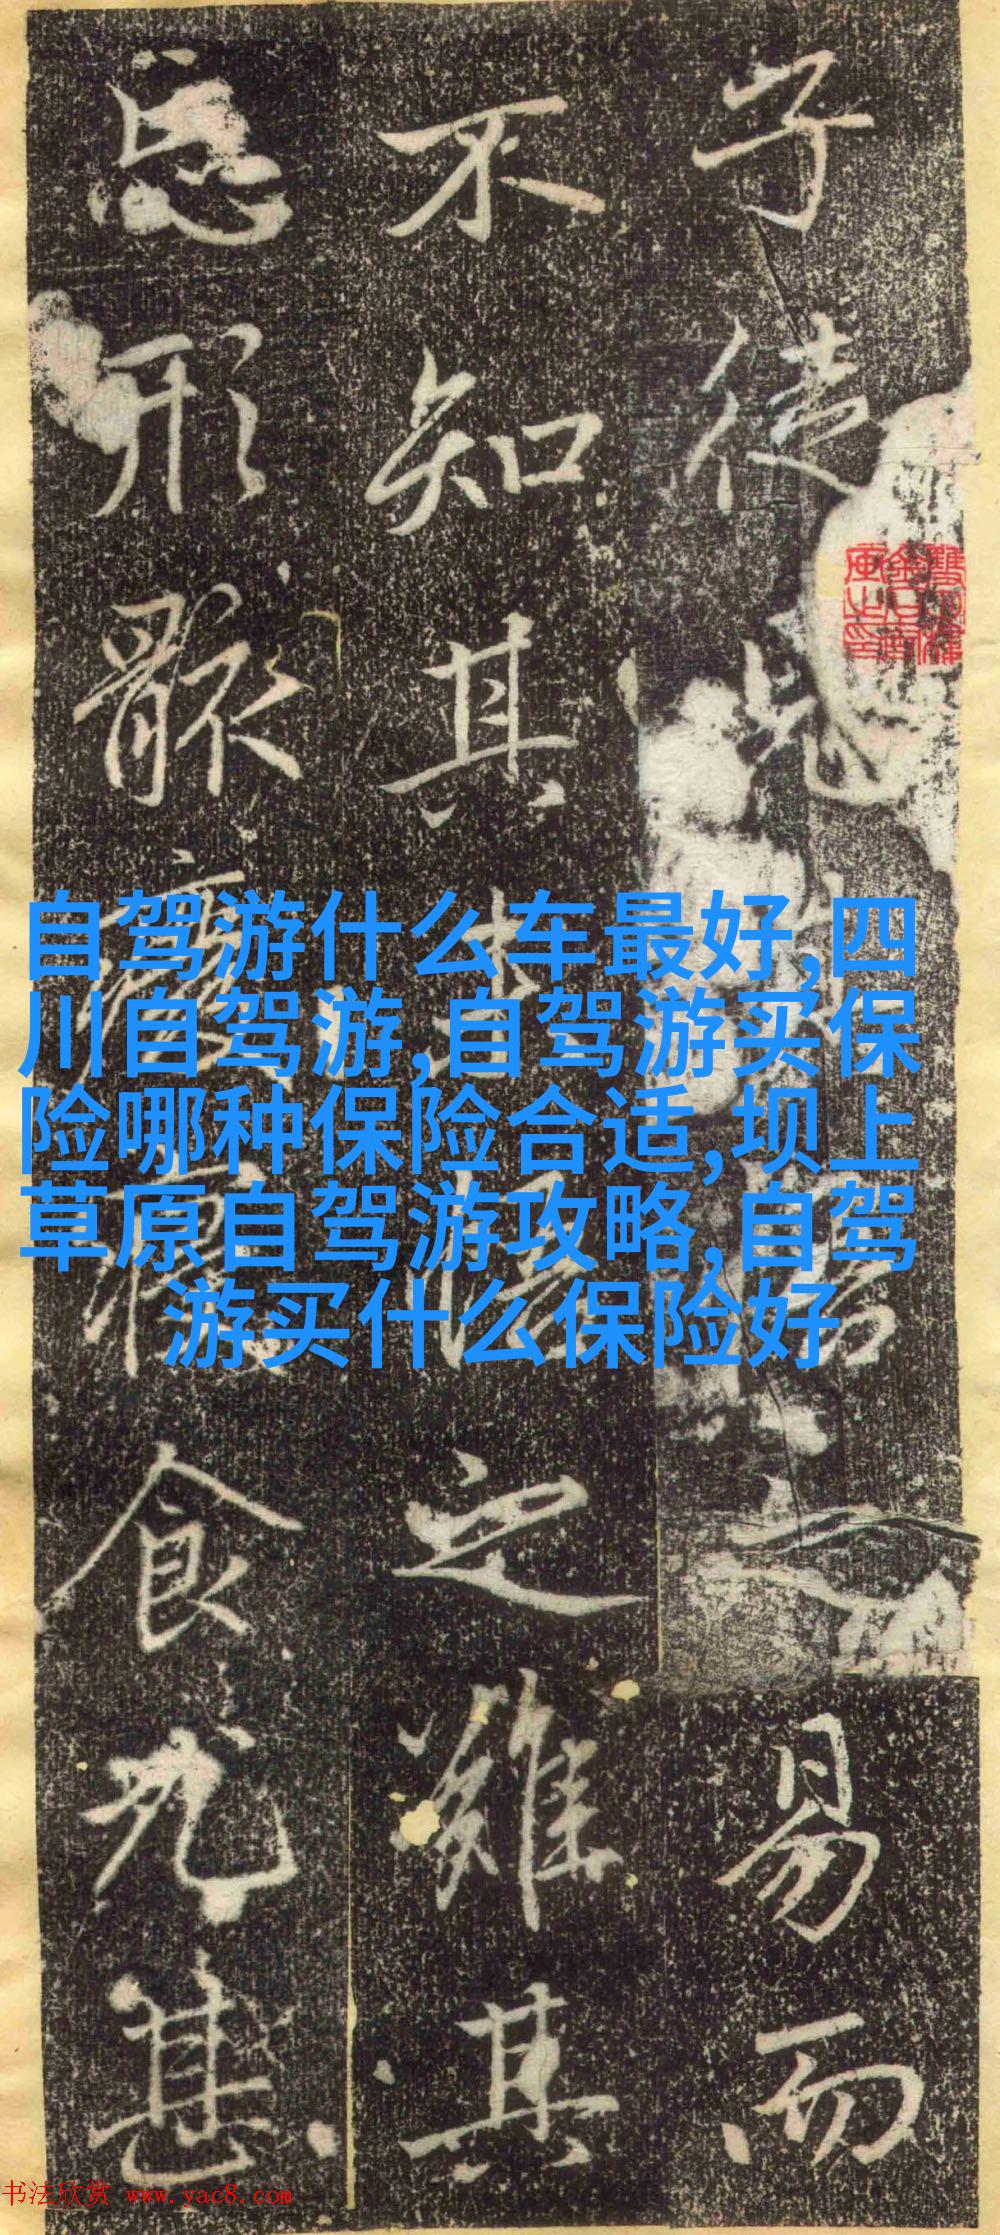 子徒見
易而
不知其
之難其
忘形骸
食尤甚
自驾游什么车最好,四
川自驾游,自驾游买保
险哪种保险合适,坝上
草原自驾游攻略,自驾
游买什么保险好
书法欣赏 www.yac8.com